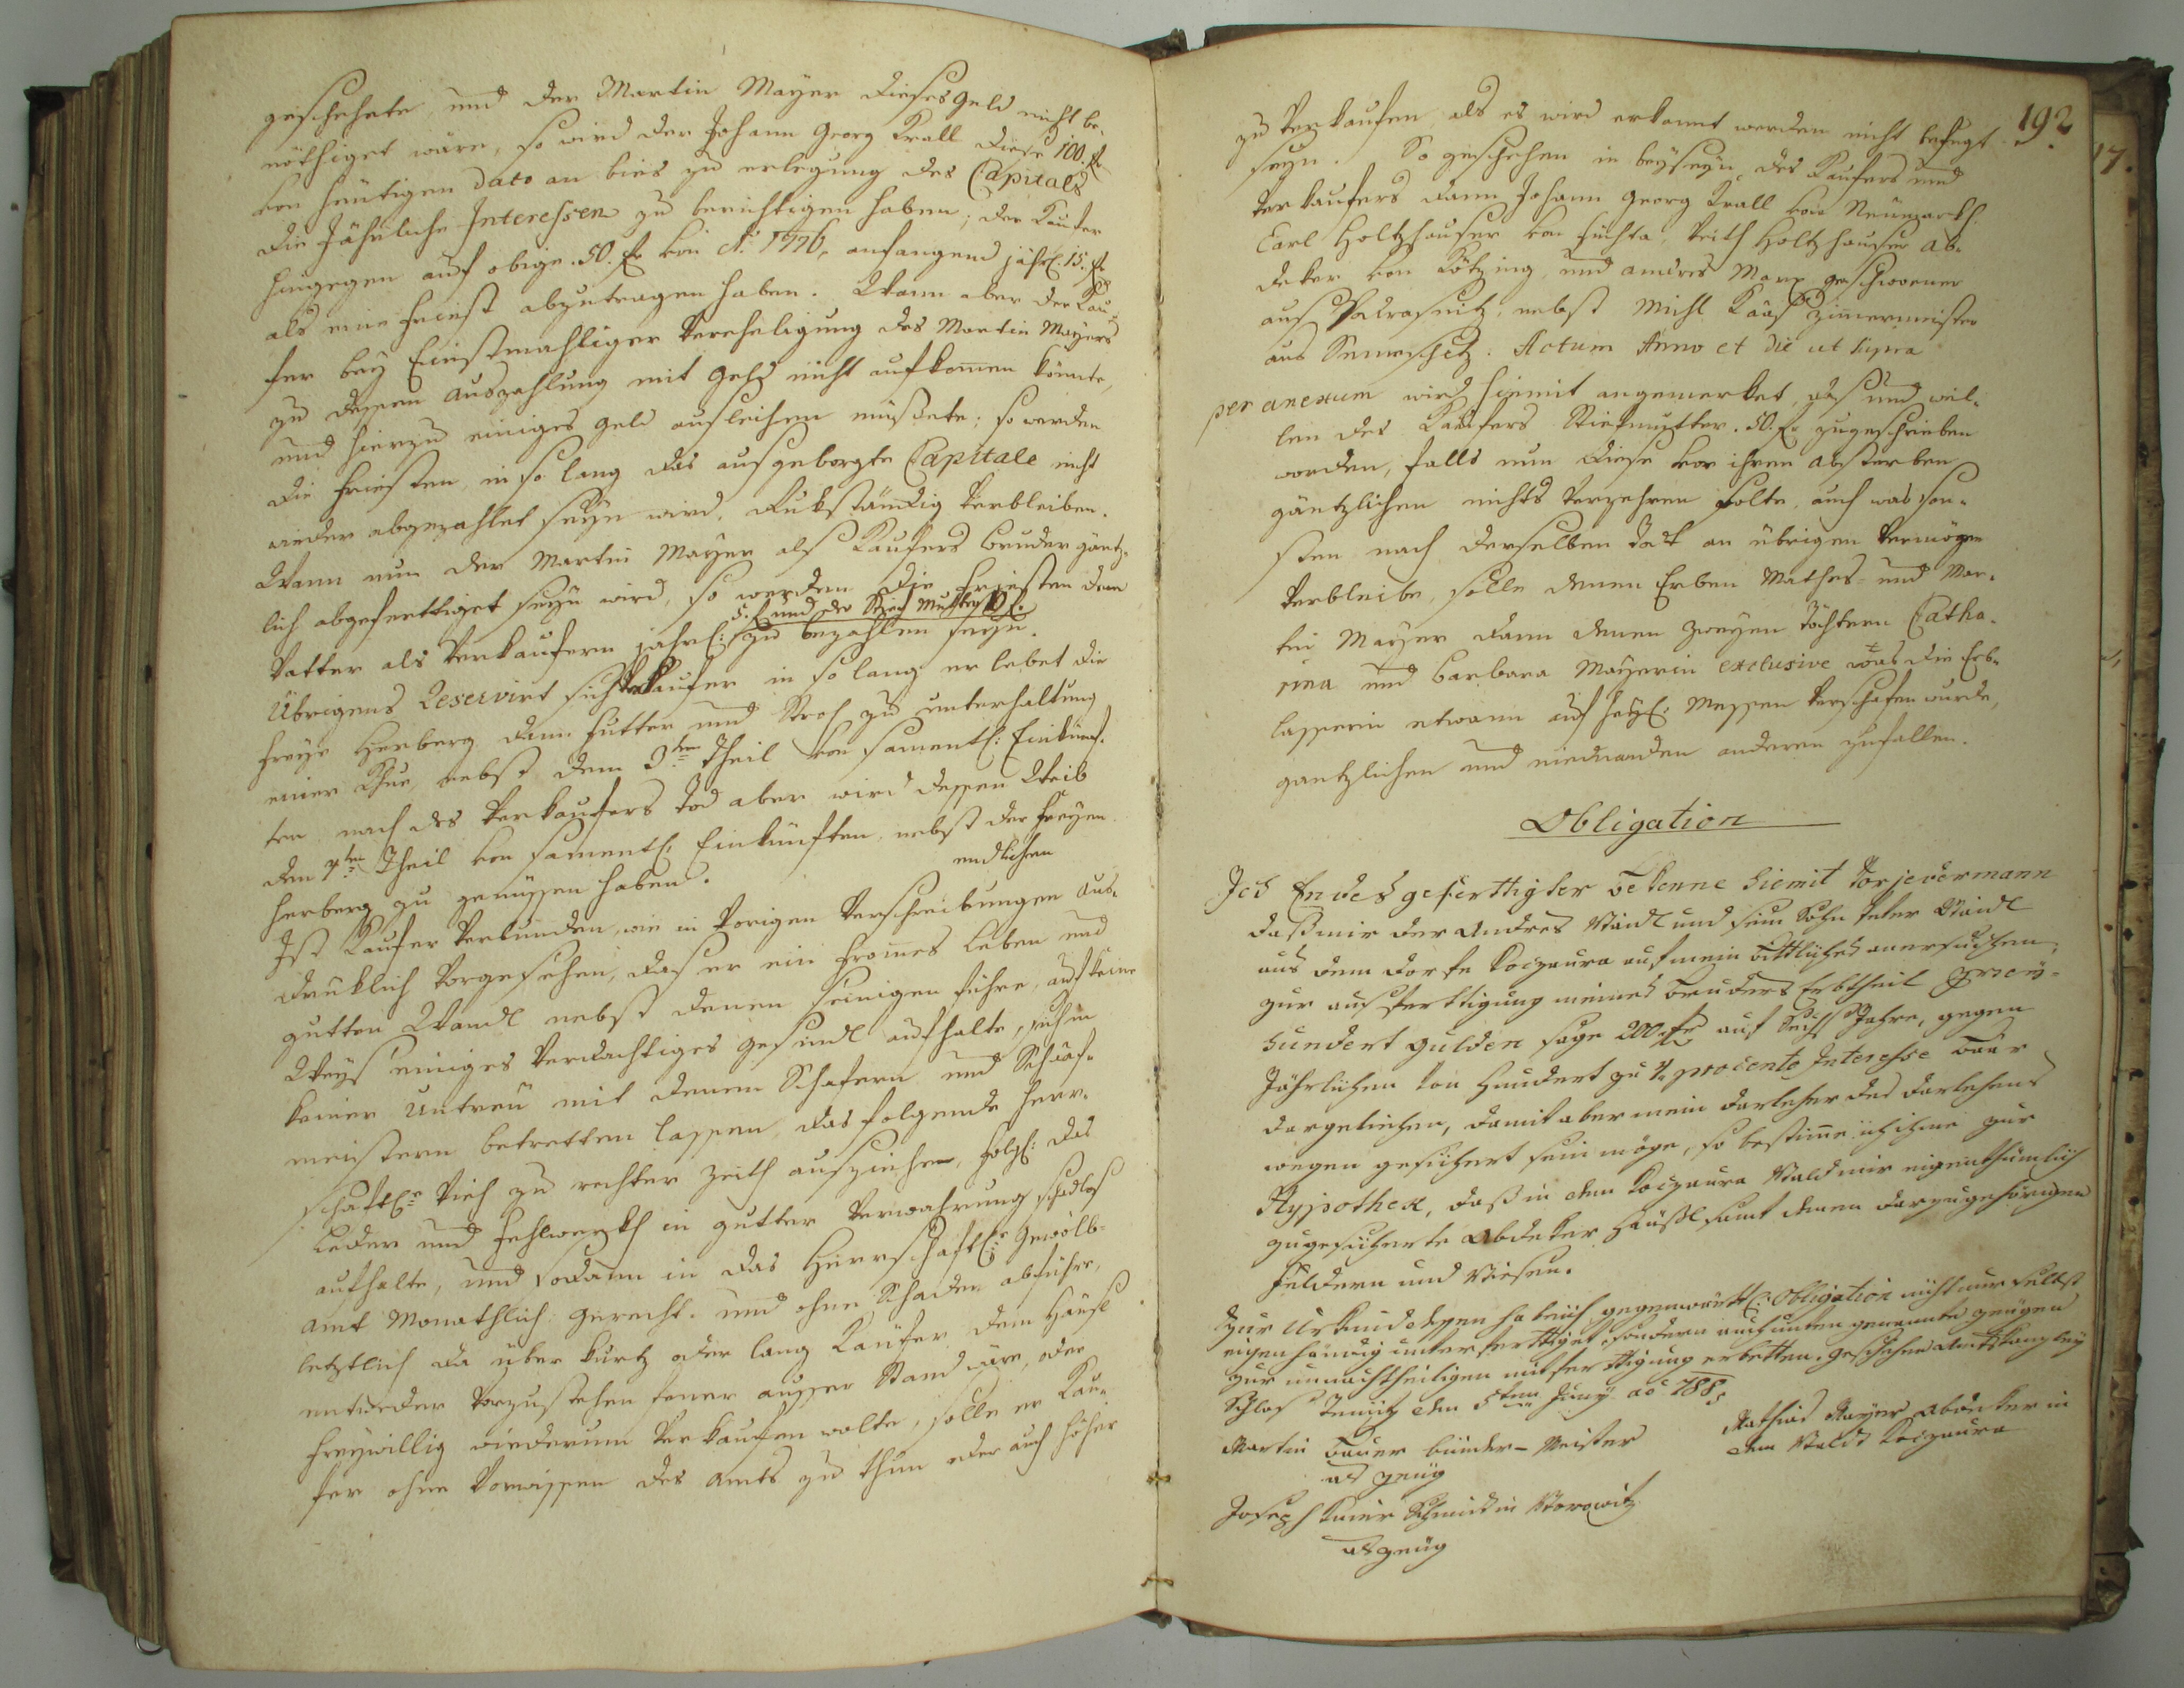 geschehete und der Martin Mayer dieses geld nicht be-
nöthiget wäre, so wird der Johann Georg Krall diese 100. fl
von heutigen dato an bies zu erlegung des Capitals
die Jährliche Interessen zu berichtigen haben; der Kaufer
hingegen auf obige 50. fl von Aō 1776. anfangend jährl: 15. fl
als eine Friest abzutragen haben. Wann aber der Kau-
fer bey Einstmahliger Verehelichung des Martin Mayers
zu dessen auszahlung mit geld nicht aufkomen könnte,
und hierzu einiges geld ausleihen müßete; so werden
die Friesten, in so lang das ausgeborgte Capitale nicht
wieder abgezahlet seyn wird, Rukständig verbleiben.
Wann nun der Martin Mayer als Kaufers bruder gäntz-
lich abgeferttiget seyn wird, so werden die Friesten dem
5. fl und der Stief Mutter 10 fl.
Vatter als Verkaufern jährl: zu bezahlen seyn.
Übrigens Reservirt sich Verkaufer in so lang er lebet die
freye Herberg dann Futter und Stroh zu unterhaltung
einer Khue, nebst dem 3ten Theil von samentl: Einkünf-
ten nach des Verkaufers Tod aber wird dessen Weib
den 4ten Theil von samentl: Einkünften nebst der freyen
Herberg zu genüssen haben.
endlichen
Ist Kaufer verbunden, wie in vorigen Verschreibungen aus-
druklich vorgesehen, das er ein fromes leben und
gutten Wandl nebst denen seinigen führe, auf keine
Weys einiges verdachtiges gesindl aufhalte, sich in
keiner untreu mit denen Schafern und Schaaf-
meistern betretten lassen, das folgende Herr-
schaftl: Vieh zu rechter Zeith ausziehen, folgl: das
Leder und Fehlwerkh in gutter Verwahrung schadlos
aufhalte, und sodann in das Herrschaftl: gewölb-
amt Monathlich gerecht- und ohne Schaden abführe,
letztlich da über kurtz oder lang Kaufer dem Häusl
entweder vorzustehen ferner ausser Stand wäre, oder
freywillig wiederum verkaufen wolte, solle er Kau-
fer ohne vorwissen des amts zu thun oder auch höher
192
17.
zu verkaufen als es wird erkannt werden nicht befugt
seyn. So geschehen in beyseyn des Kaufers und
Verkaufers dann Johann Georg Krall von Neumarkh
Carl Holtzhauser von Fuchta, Veith Holtzhauser ab-
deker von Kötzing und andres Marx geschworner
aus, nebst Michl Kääs Zimermeister
aus Semeschitz. Actum Anno et die ut supra
per anexum wird hiemit angemerket, das und weil-
len des Kaufers Stiefmutter 50. fl zugeschrieben
worden, falls nun diese vor ihren absterben
gäntzlichen nichts verzehren solte, auch was son-
sten nach derselben Todt an übrigen Vermögen
verbleibe, solle denen Erben Mathes- und Mar-
tin Mayer dann denen zweyen Töchtern Catha-
rina und Barbara Mayerin exclusive was die Erb-
lasserin etwann auf heyl: Messen verschafen wurde,
gantzlichen und niemanden anderen zufallen.
Obligation
Ich Endesgeferttigter bekenne hiemit vor jedermann
daß mir der Andres Waidl und sein Sohn Peter Waidl
aus dem dorfe Kocjaura auf mein bittliches anersuchen,
zur ausferttigung meines bruders Erbtheil zwey-
hundert gulden sage 200 fl auf Sechs Jahre, gegen
Jährlichen von Hundert zu 4 procento Interesse baar
dargeliehen, damit aber mein darleiher des darlehens
wegen gesichert sein möge, so bestime ich ihme zur
Hypothek, daß in dem Kocjaura Wald mir eigenthümlich
zugesicherte abdeker Häußl samt denen darzugehörigen
Feldern und Wiesen.
Zur Urkund dessen habe ich gegenwärttl: Obligation nicht nur selbst
eigenhändig unterferttiget, sondern auch unten genannte zeugen
zur unnachtheiligen mitferttigung erbetten. geschehen amtskanzley
Schlos Teinitz den 5ten Juny aō 788.
Mathias Mayer abdeker in
dem Wald Kocjaura
Martin Bauer binder-Meister
als zeug
Joseph Kmier Schmidt in Worowitz
als zeug